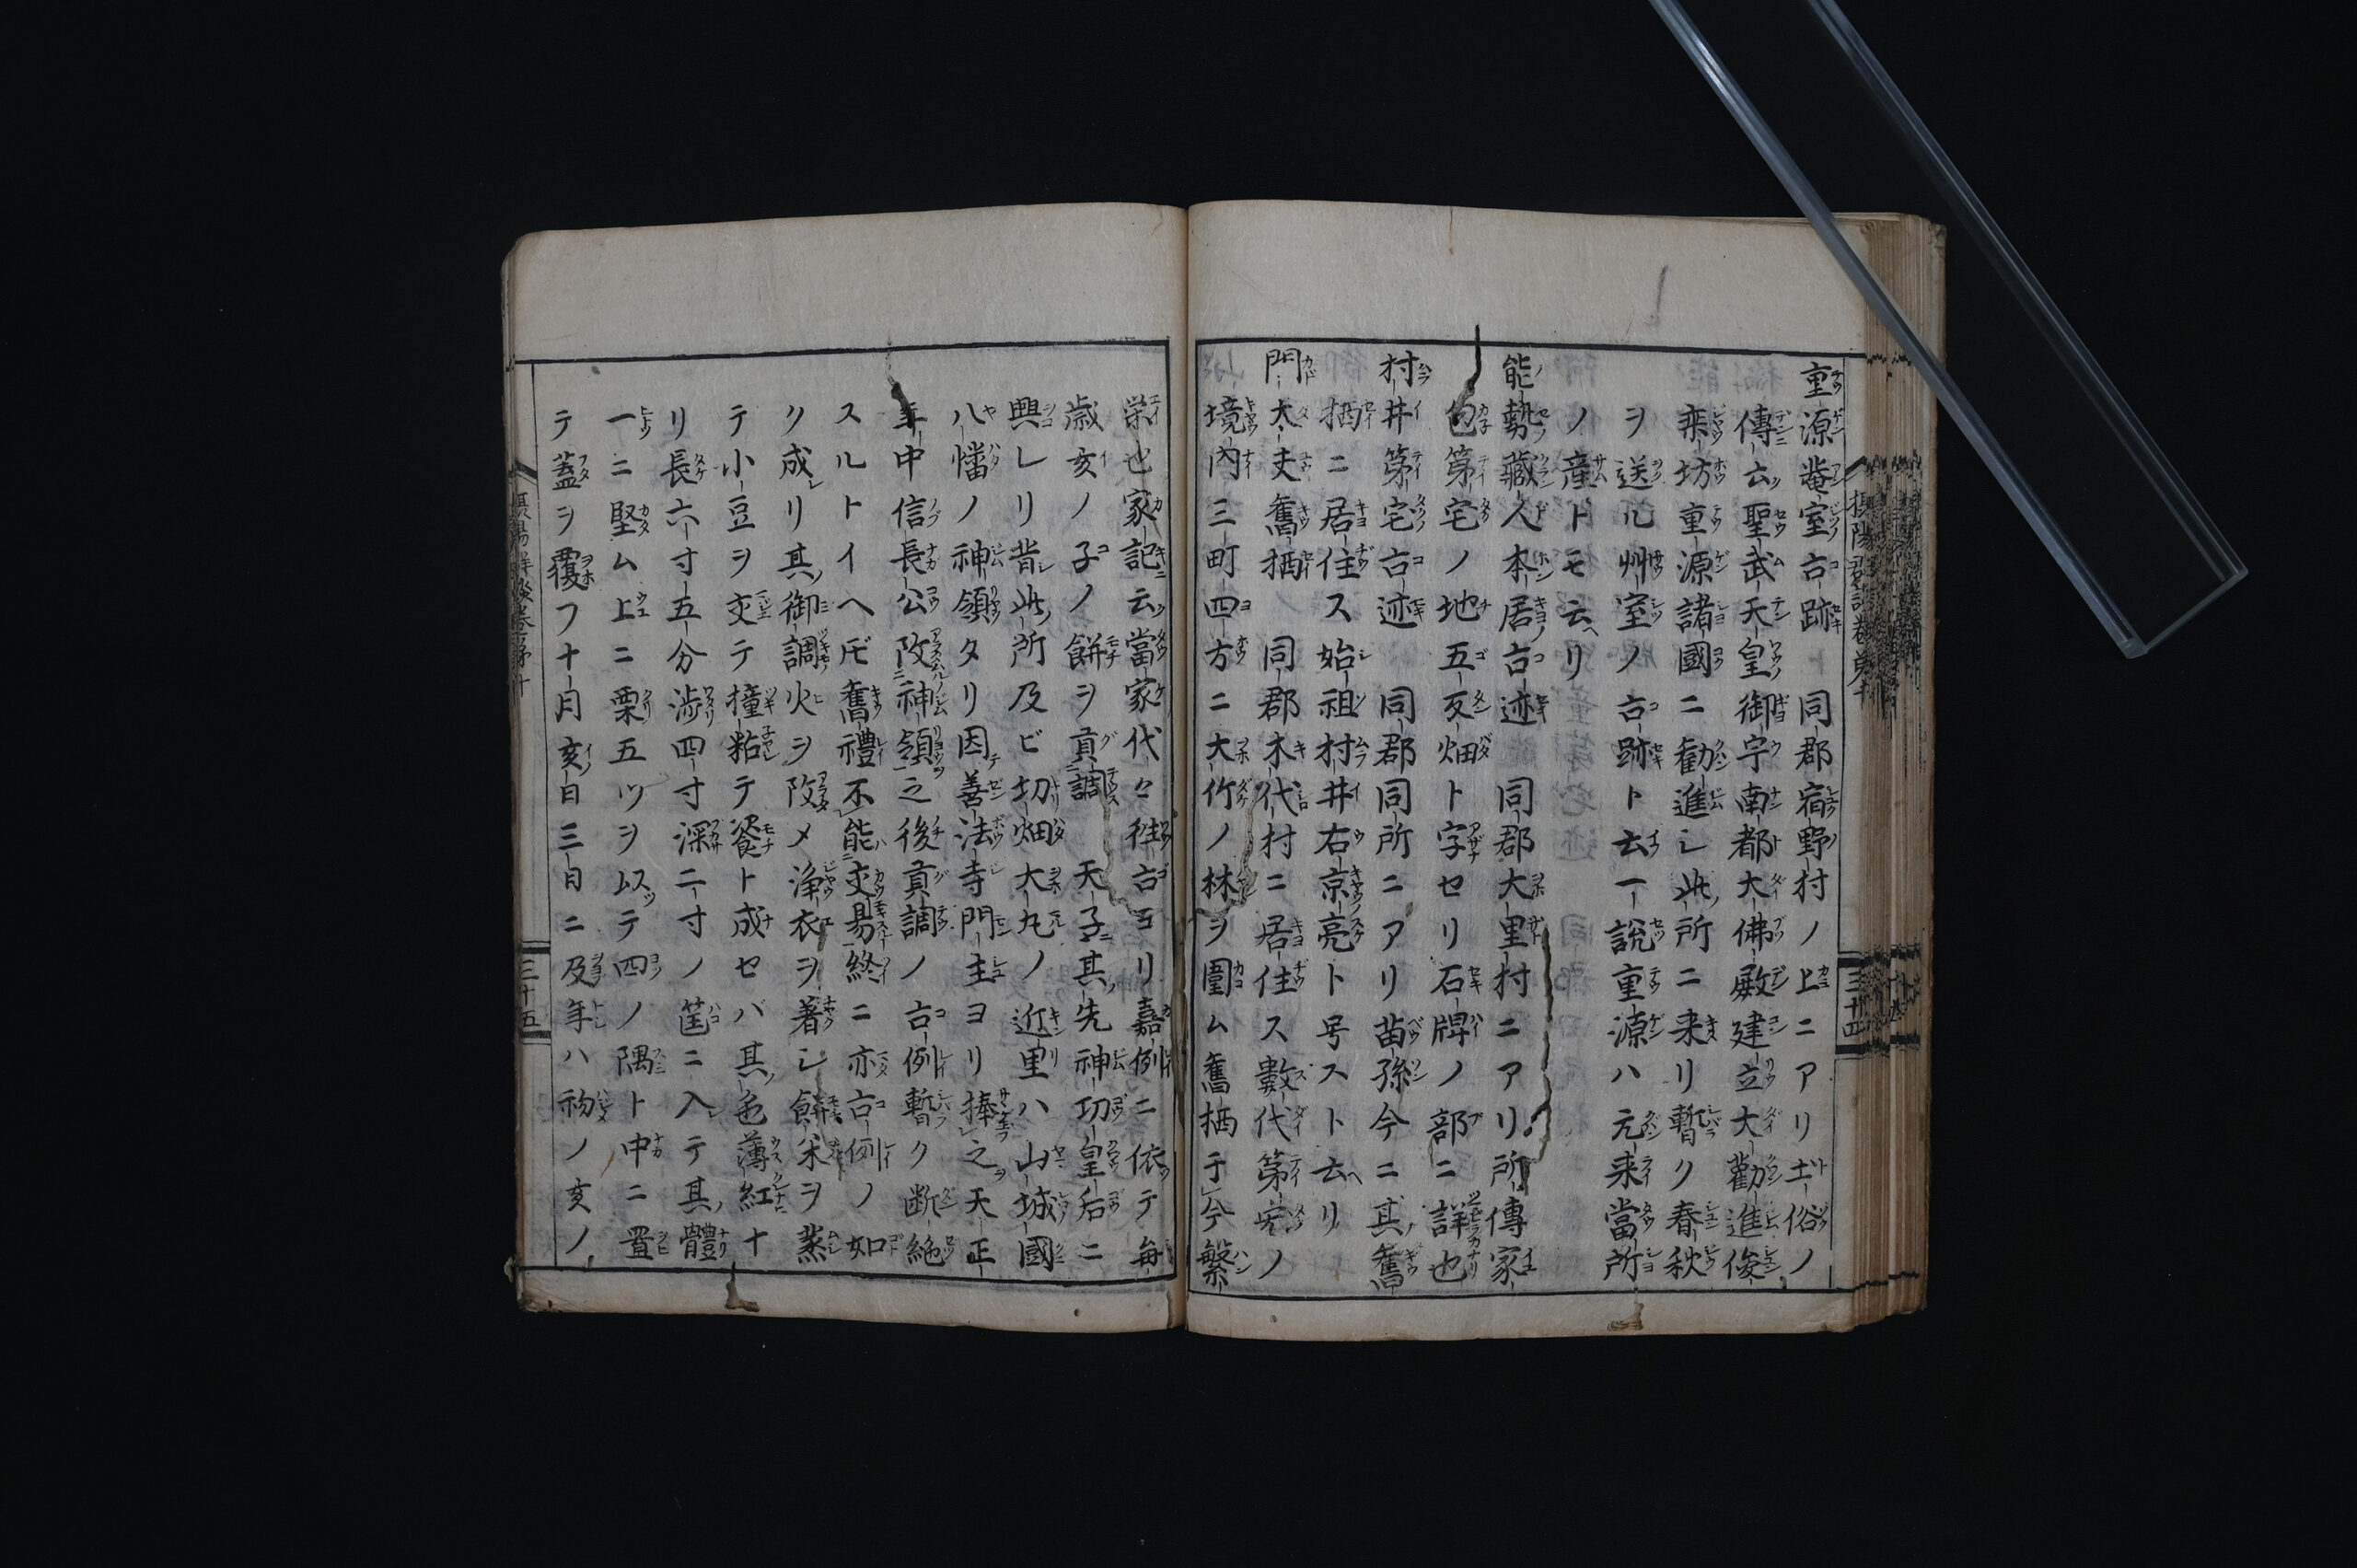 重源菴室古跡 同郡宿野村ノ上ニアリ𡈽俗ノ
傳云聖武天皇御宇南都大佛殿建立大勸進俊
乗坊重源諸國ニ勸進シ此所ニ来リ暫ク春秋
ヲ送ル艸室ノ古跡ト云一説重源ハ元来當所
ノ産トモ云ヘリ
能勢藏人本居古迹 同郡大里村ニアリ所傳家
包第宅ノ地五反畑ト字セリ石牌ノ部ニ詳也
村井第宅古迹 同郡同所ニアリ苗孫今ニ其舊
栖ニ居住ス始祖村井右京亮ト号スト云ヘリ
門大夫舊栖 同郡木代村ニ居住ス數代第宅ノ
境内三町四方ニ大竹ノ林ヲ圍ム舊栖于今繁
栄也家記云當家代々徃古ヨリ嘉例ニ依テ毎
歳亥ノ子ノ餅ヲ貢調 天子其先神功皇后ニ
興レリ昔此所及ビ切畑大丸ノ近里ハ山城國
八幡ノ神領タリ因善法寺門主ヨリ捧之天正
年中信長公改神領之後貢調ノ古例暫ク断絶
スルトイヘ𪜈舊禮不能交易終ニ亦古例ノ如
ク成リ其御調火ヲ改メ浄衣ヲ著シ餅米ヲ蒸
テ小豆ヲ交テ撞粘テ餈ト成セバ其色薄紅十
リ長六寸五分渉四寸深二寸ノ筐ニ入テ其體
一ニ堅ム上ニ栗五ツヲ以テ四ノ隅ト中ニ置
テ蓋ヲ覆フ十月亥日三日ニ及年ハ初ノ亥ノ
摂陽群談巻第十
三十四
三十五